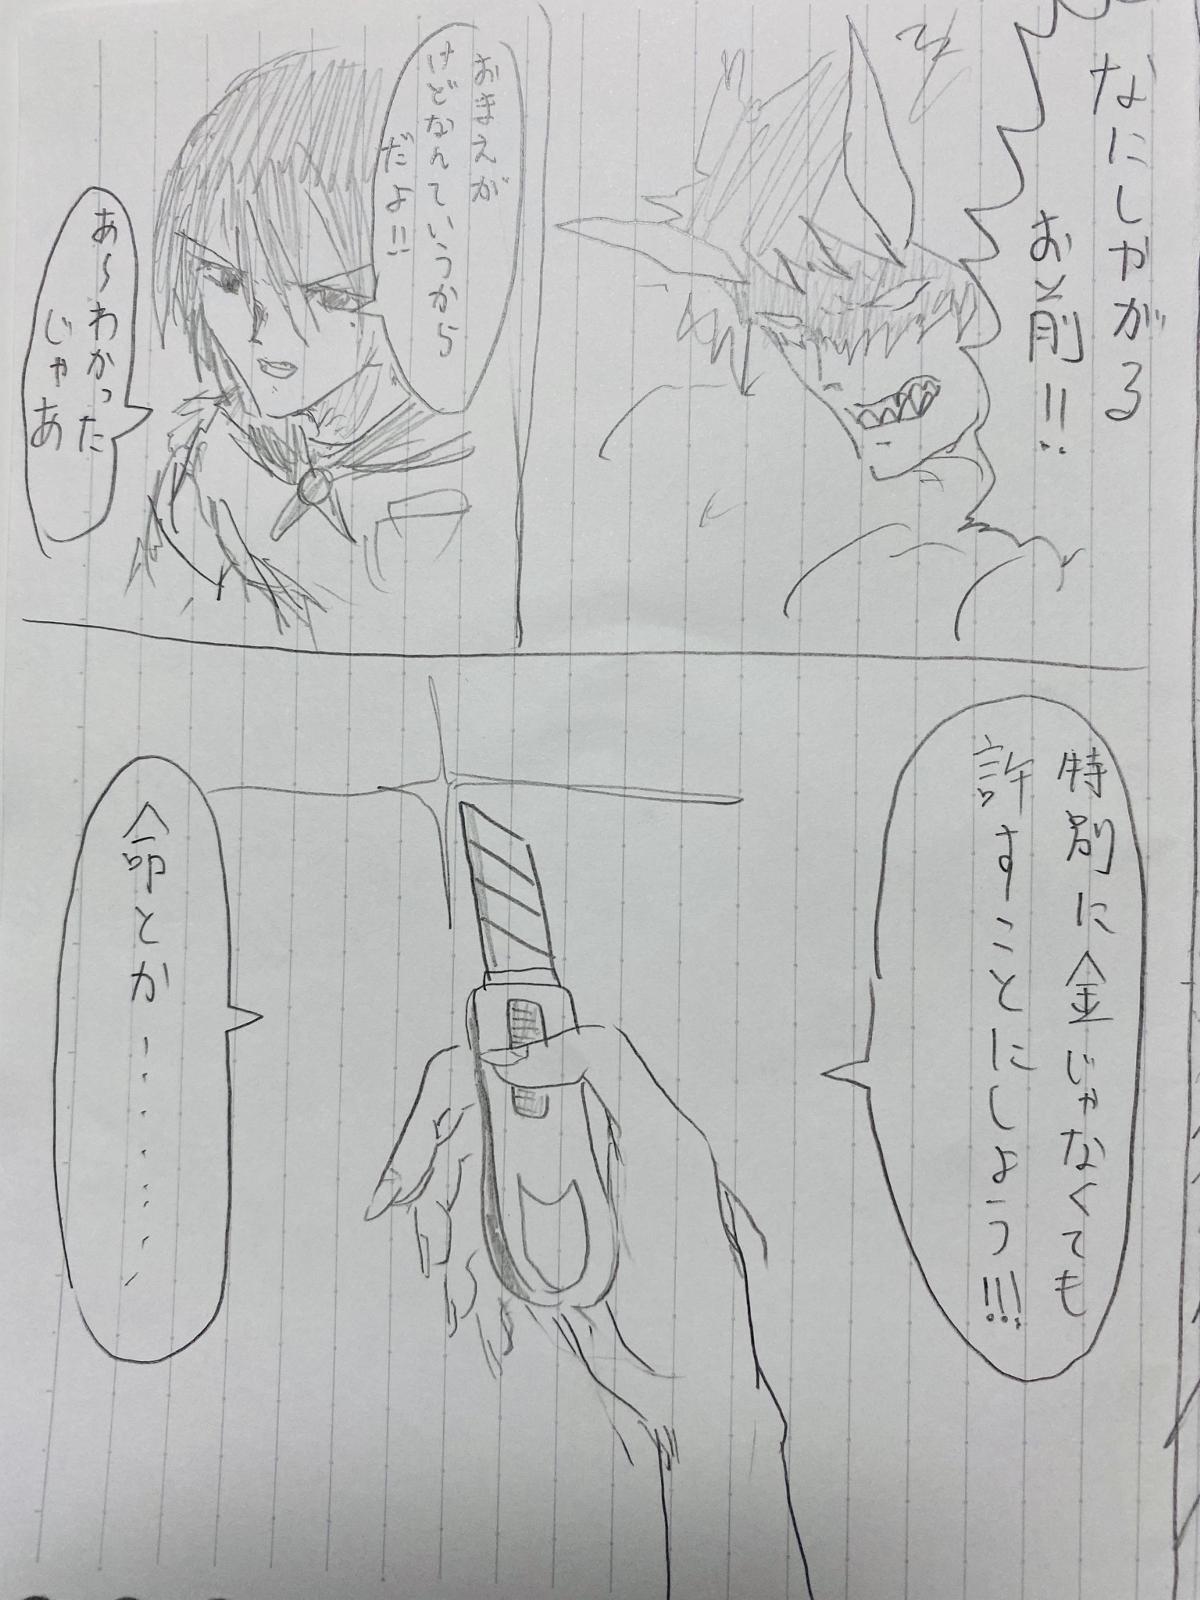 なにしやがる
お前!!
おまえが
けどなんていうから
だよ!!
あ〜わかった
じゃあ
特別に金じゃなくても
許すことにしよう!!!
命とか………